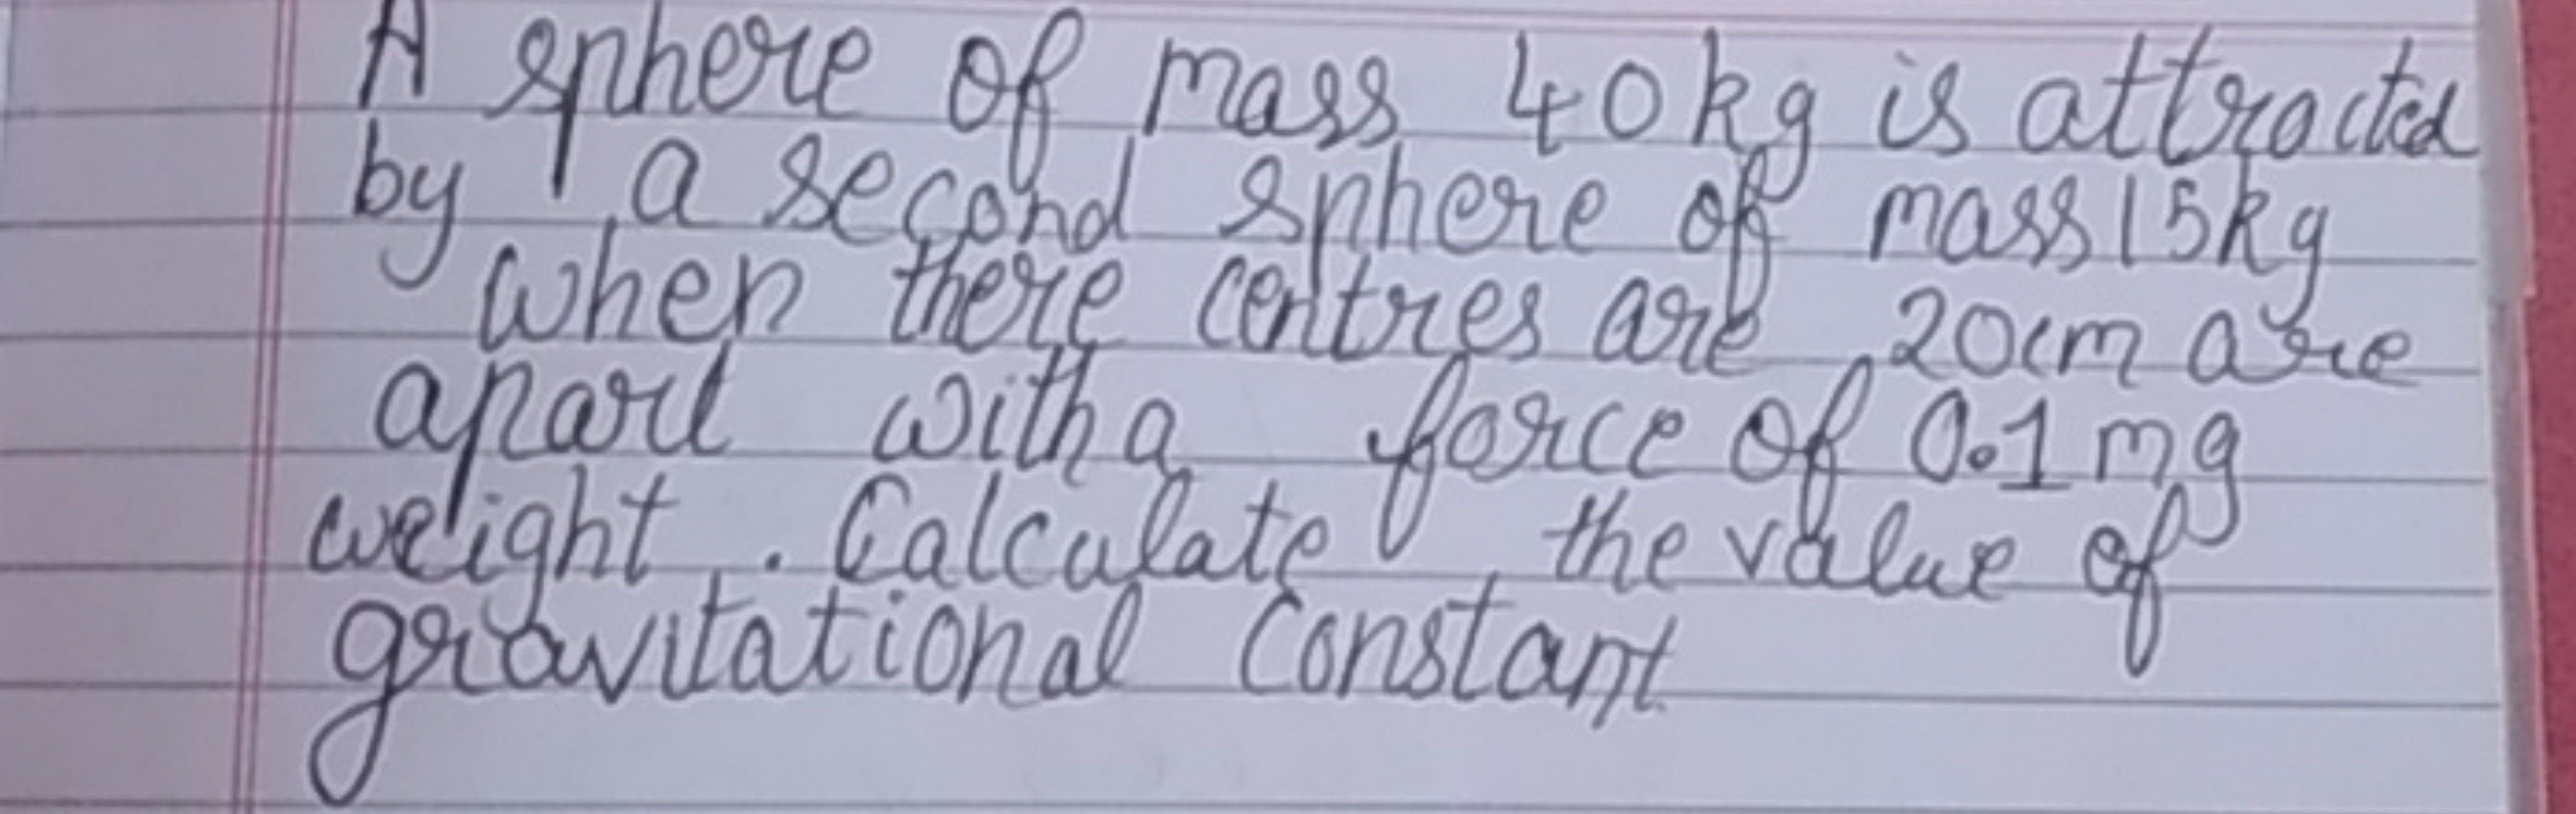 A sphere of mass 40kg is attracted
by a second sphere of mass 15kg
when there centres are 20cm are
apart with a force of 0.1 mg
weight. Calculate the value of
gravitational constant